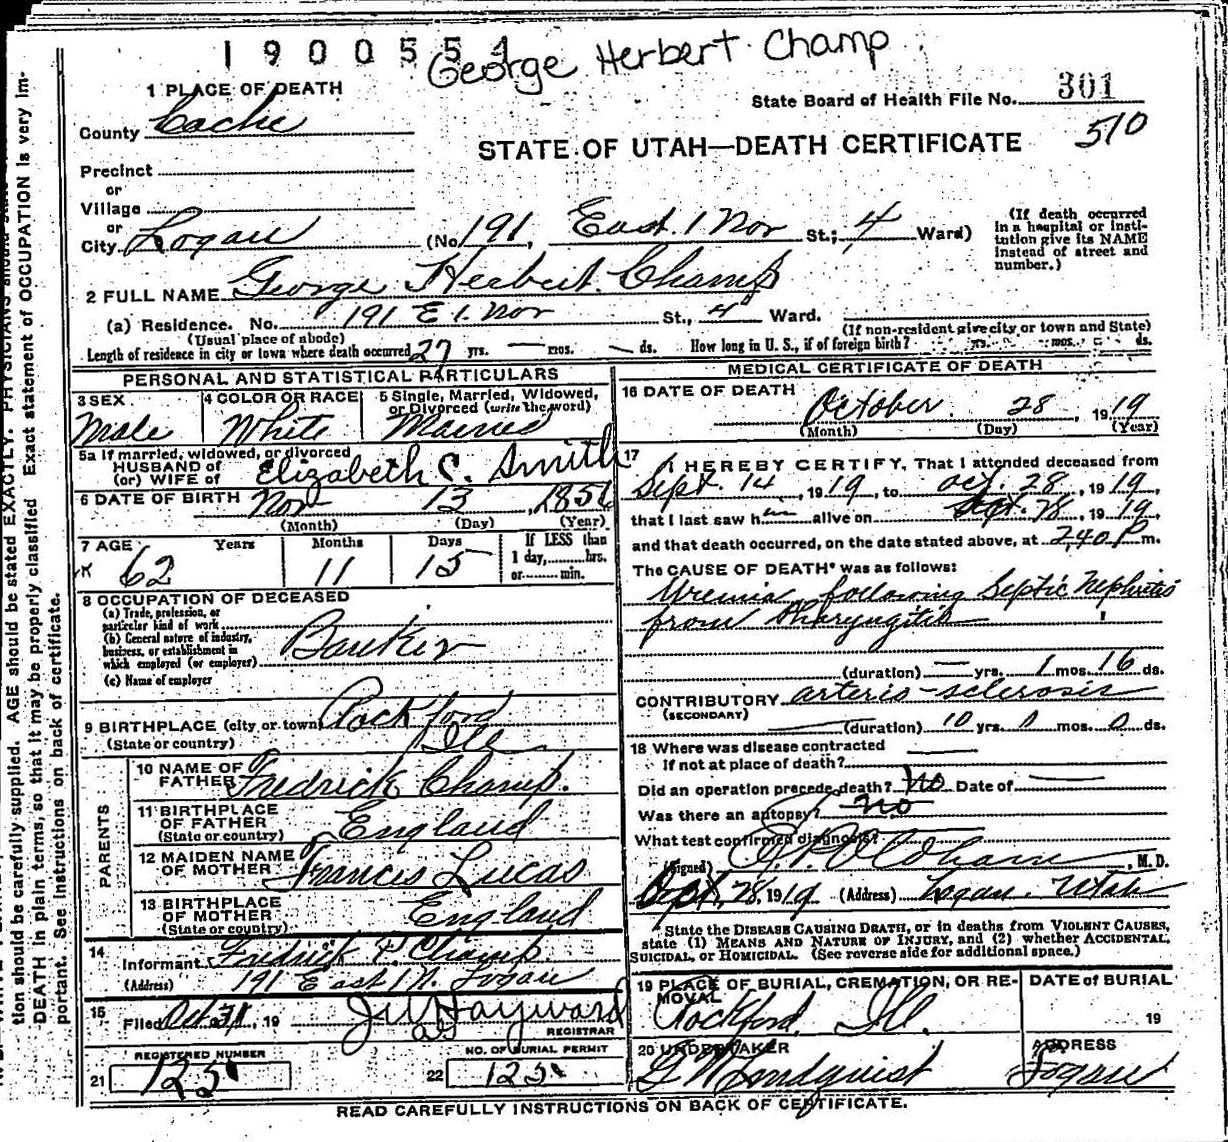 1900554
George Herbert Champ
1 PLACE OF DEATH
State Board of Health File No. 301
510
County Cache
STATE OF UTAH—DEATH CERTIFICATE
Precinct
or
Village
or
City Logan (No. 191, East 1 Nor St.; 4 Ward)
(If death occurred
in a hospital or insti-
tution give its NAME
instead of street and
number.)
2 FULL NAME George Herbert Champ
(a) Residence. No. 191 E 1. Nor St., 4 Ward.
(Usual place of abode)
(If non-resident give city or town and State)
Length of residence in city or town where death occurred 27 yrs. — mos. — ds. How long in U. S., if of foreign birth? yrs. mos. ds.
PERSONAL AND STATISTICAL PARTICULARS
3 SEX
Male
4 COLOR OR RACE
White
5 Single, Married, Widowed,
or Divorced (write the word)
Married
5a If married, widowed, or divorced
HUSBAND of
(or) WIFE of Elizabeth C. Smith
6 DATE OF BIRTH Nov 13, 1856
(Month) (Day) (Year)
7 AGE Years Months Days
62 11 15
If LESS than
1 day,........hrs.
or........min.
8 OCCUPATION OF DECEASED
(a) Trade, profession, or
particular kind of work
(b) General nature of industry,
business, or establishment in
which employed (or employer)
Banker
(c) Name of employer
9 BIRTHPLACE (city or town) Rockford
(State or country) Ill
PARENTS
10 NAME OF
FATHER Fredrick Champ.
11 BIRTHPLACE
OF FATHER
(State or country) England
12 MAIDEN NAME
OF MOTHER Francis Lucas
13 BIRTHPLACE
OF MOTHER
(State or country) England
14
Informant Fredrick P. Champ
(Address) 191 East 1 N. Logan
15
Filed Oct 31, 19 J W Hayward
REGISTRAR
REGISTERED NUMBER
21 125
NO. OF BURIAL PERMIT
22 125
MEDICAL CERTIFICATE OF DEATH
16 DATE OF DEATH
October 28, 1919
(Month) (Day) (Year)
17
I HEREBY CERTIFY, That I attended deceased from
Sept. 14, 1919, to Oct. 28, 1919,
that I last saw him alive on Sept. 28, 1919,
and that death occurred, on the date stated above, at 2,40 P m.
The CAUSE OF DEATH* was as follows:
Uremia following Septic Nephritis
from Pharyngitis
(duration) — yrs. 1 mos. 16 ds.
CONTRIBUTORY arterio-sclerosis
(SECONDARY)
(duration) 10 yrs. 0 mos. 0 ds.
18 Where was disease contracted
If not at place of death?
Did an operation precede death? No Date of
Was there an autopsy? no
What test confirmed diagnosis?
(Signed) , M. D.
Sept. 28, 1919 (Address) Logan. Utah
* State the DISEASE CAUSING DEATH, or in deaths from VIOLENT CAUSES,
state (1) MEANS AND NATURE OF INJURY, and (2) whether ACCIDENTAL,
SUICIDAL, OR HOMICIDAL. (See reverse side for additional space.)
19 PLACE OF BURIAL, CREMATION, OR RE-
MOVAL
Rockford, Ill.
DATE OF BURIAL
19
20 UNDERTAKER
G W Lindquist
ADDRESS
Logan
READ CAREFULLY INSTRUCTIONS ON BACK OF CERTIFICATE.
tion should be carefully supplied. AGE should be stated EXACTLY. PHYSICIANS should
DEATH in plain terms, so that it may be properly classified Exact statement of OCCUPATION is very im-
portant. See Instructions on back of certificate.